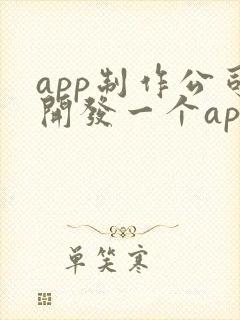 app制作公司
開發一个ap
单笑寒